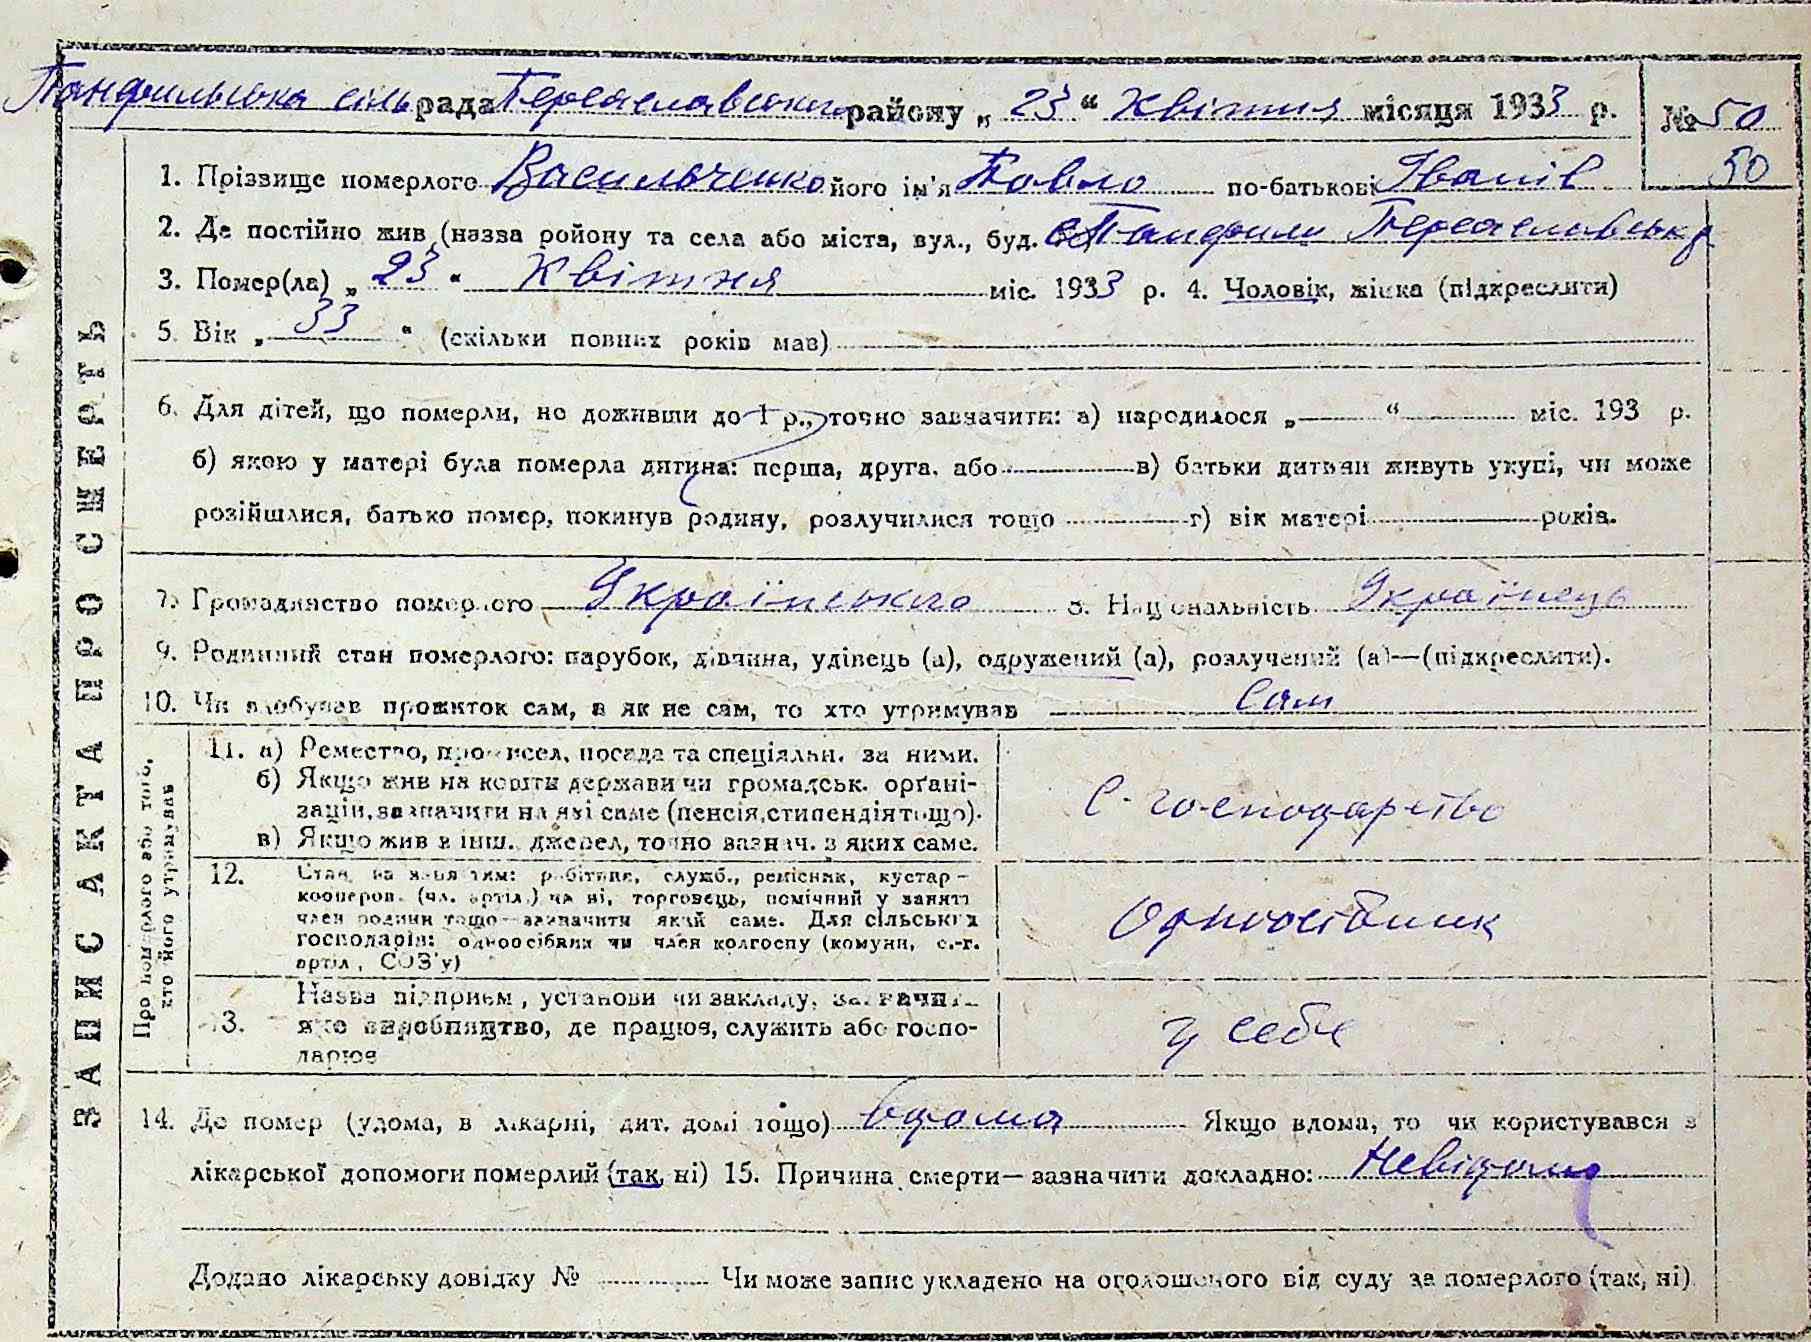 Панфильська сільрада Переяславського району „ 23 “ Квітня місяця 1933 р. № 50
50
1. Прізвище померлого Васильченко його ім'я Павло по-батькові Іванів
2. Де постійно жив (назва ройону та села або міста, вул., буд. с. Панфили Переяславськ
3. Помер(ла) „ 23 “ Квітня міс. 1933 р. 4. Чоловік, жінка (підкреслити)
5. Вік „ 33 “ (скільки повних років мав)
6. Для дітей, що померли, не доживши до 1 р., точно зазначити: а) народилося „ “ міс. 193 р.
б) якою у матері була померла дитина: перша, друга, або в) батьки дитини живуть укупі, чи може
розійшлися, батько помер, покинув родину, розлучилися тощо г) вік матері років.
7. Громадянство померлого Українського 8. Національність Українець
9. Родинний стан померлого: парубок, дівчина, удівець (а), одружений (а), розлучений (а)—(підкреслити).
10. Чи здобував прожиток сам, а як не сам, то хто утримував Сам
ЗАПИС АКТА ПРО СМЕРТЬ
Про померлого або того,
хто його утримував
11. а) Ремество, промисел, посада та спеціяльн. за ними.
б) Якщо жив на кошти держави чи громадськ. орґані-
зацій, зазначити на які саме (пенсія, стипендія тощо).
в) Якщо жив з інш. джерел, точно зазнач. з яких саме.
С-господарство
12. Стан за заняттям: робітник, служб., ремісник, кустар-
кооперов. (чл. артіл.) чи ні, торговець, помічний у занятті
член родини тощо—зазначити який саме. Для сільських
господарів: одноосібник чи член колгоспу (комуни, с.-г.
артіл, СОЗ'у)
Одноосібник
13. Назва підприєм, установи чи закладу, зазначит.
яке виробництво, де працює, служить або госпо-
дарює
у себе
14. Де помер (удома, в лікарні, дит. домі тощо) вдома Якщо вдома, то чи користувався з
лікарської допомоги померлий (так, ні) 15. Причина смерти—зазначити докладно: Невідомо
Додано лікарську довідку № Чи може запис укладено на оголошеного від суду за померлого (так, ні)